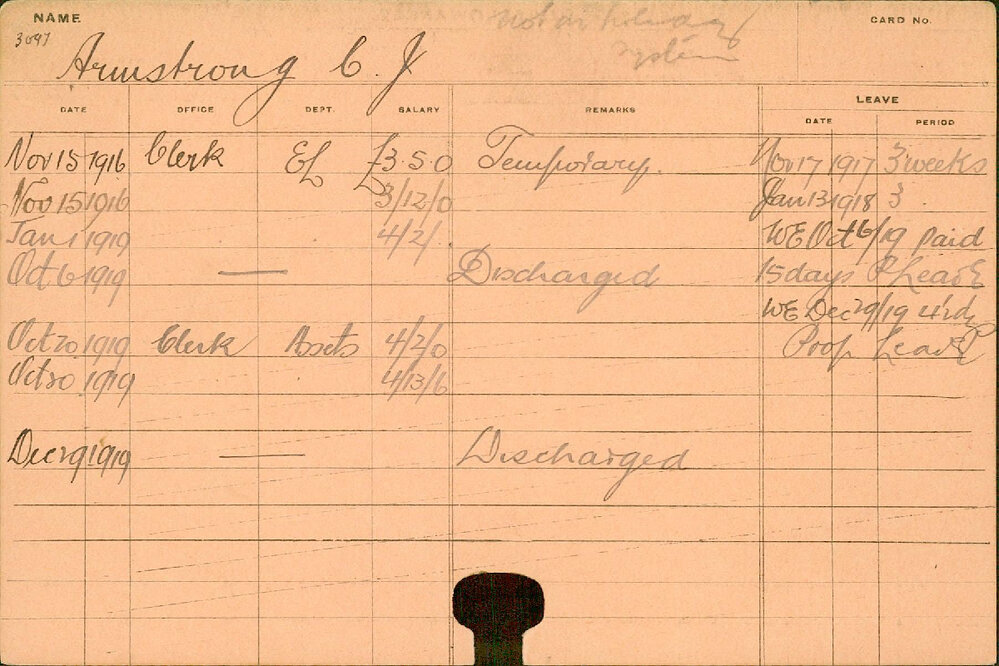 NAME
CARD No.
3097
not on holiday
system
Armstrong C. J
DATE OFFICE DEPT. SALARY REMARKS LEAVE
DATE PERIOD
Nov 15 1916 Clerk EL £3.5.0 Temporary. Nov 17 1917 3 weeks
Nov 15 1916 £3/12/0 Jan 13 1918 3
Jan 1 1919 4/2/. WE Oct 6/19 paid
Oct 6 1919 — Discharged 15 days P Leave
WE Dec 29/19
Oct 20 1919 Clerk Assets 4/2/0 Prop Leave
Oct 20 1919 4/13/6
Dec 29 1919 — Discharged